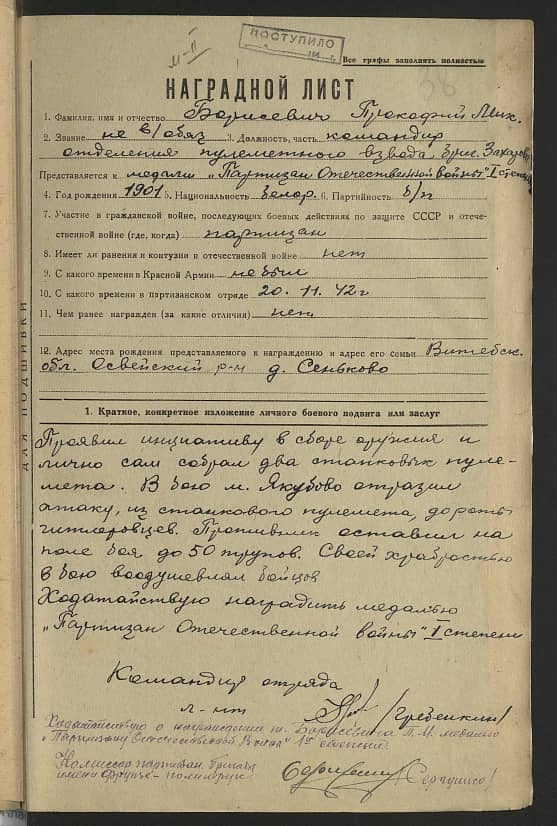 м-II
ПОСТУПИЛО
Все графы заполнять полностью
38
НАГРАДНОЙ ЛИСТ
1. Фамилия, имя и отчество Борисевич Прокофий Мих.
2. Звание не в/обяз 3. Должность, часть командир
отделения пулеметного взвода, бриг. Захарова
Представляется к медали „Партизан Отечественной войны" I степени
4. Год рождения 1901 5. Национальность белор. 6. Партийность б/п
7. Участие в гражданской войне, последующих боевых действиях по защите СССР и отече-
ственной войне (где, когда) партизан
8. Имеет ли ранения и контузии в отечественной войне нет
9. С какого времени в Красной Армии не был
10. С какого времени в партизанском отряде 20.11.42г
11. Чем ранее награжден (за какие отличия) нет
12. Адрес места рождения представляемого к награждению и адрес его семьи Витебск.
обл. Освейский р-н д. Сеньково
ДЛЯ ПОДШИВКИ
1. Краткое, конкретное изложение личного боевого подвига или заслуг
Проявил инициативу в сборе оружия и
лично сам собрал два станковых пуле-
мета. В бою м. Якубово отразил
атаку, из станкового пулемета, до роты
гитлеровцев. Противник оставил на
поле боя до 50 трупов. Своей храбростью
в бою воодушевлял бойцов
Ходатайствую наградить медалью
„Партизан Отечественной войны" I степени
Командир отряда
л-нт /Гребенкин/
Ходатайствую о награждении т. Борисевича П.М. медалью
„Партизану Отечественной Войны" 1й степени.
Комиссар партизан. бригады
имени Фрунзе - политрук Сергушко/